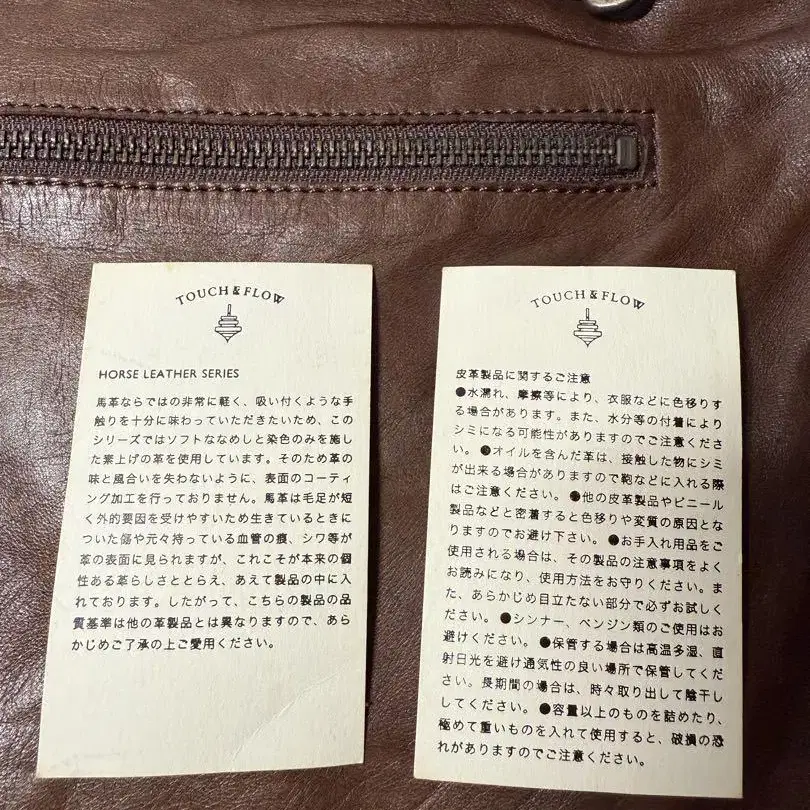 TOUCH & FLOW
HORSE LEATHER SERIES
馬革ならではの非常に軽く、吸い付くような手
触りを十分に味わっていただきたいため、この
シリーズではソフトななめしと染色のみを施し
た素上げの革を使用しています。そのため革の
味と風合いを失わないように、表面のコーティ
ング加工を行っておりません。馬革は毛足が短
く外的要因を受けやすいため生きているときに
ついた傷や元々持っている血管の痕、シワ等が
革の表面に見られますが、これこそが本来の個
性ある革らしさととらえ、あえて製品の中に入
れております。したがって、こちらの製品の品
質基準は他の革製品とは異なりますので、あら
かじめご了承の上ご愛用ください。
TOUCH & FLOW
皮革製品に関するご注意
●水濡れ、摩擦等により、衣服などに色移りす
る場合があります。また、水分等の付着により
シミになる可能性がありますのでご注意くださ
い。●オイルを含んだ革は、接触した物にシミ
が出来る場合がありますので鞄などに入れる際
はご注意ください。●他の皮革製品やビニール
製品などと密着すると色移りや変質の原因とな
りますのでお避け下さい。●お手入れ用品をご
使用される場合は、その製品の注意事項をよく
お読みになり、使用方法をお守りください。ま
た、あらかじめ目立たない部分で必ずお試しく
ださい。●シンナー、ベンジン類のご使用はお
避けください。●保管する場合は高温多湿、直
射日光を避け通気性の良い場所で保管してくだ
さい。長期間の場合は、時々取り出して陰干し
してください。●容量以上のものを詰めたり、
極めて重いものを入れて使用すると、破損の恐
れがありますのでご注意ください。